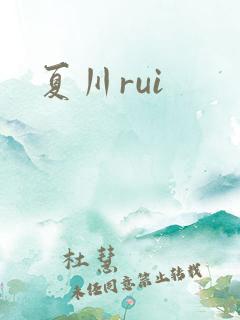 夏川rui
杜慧
未经同意禁止转载